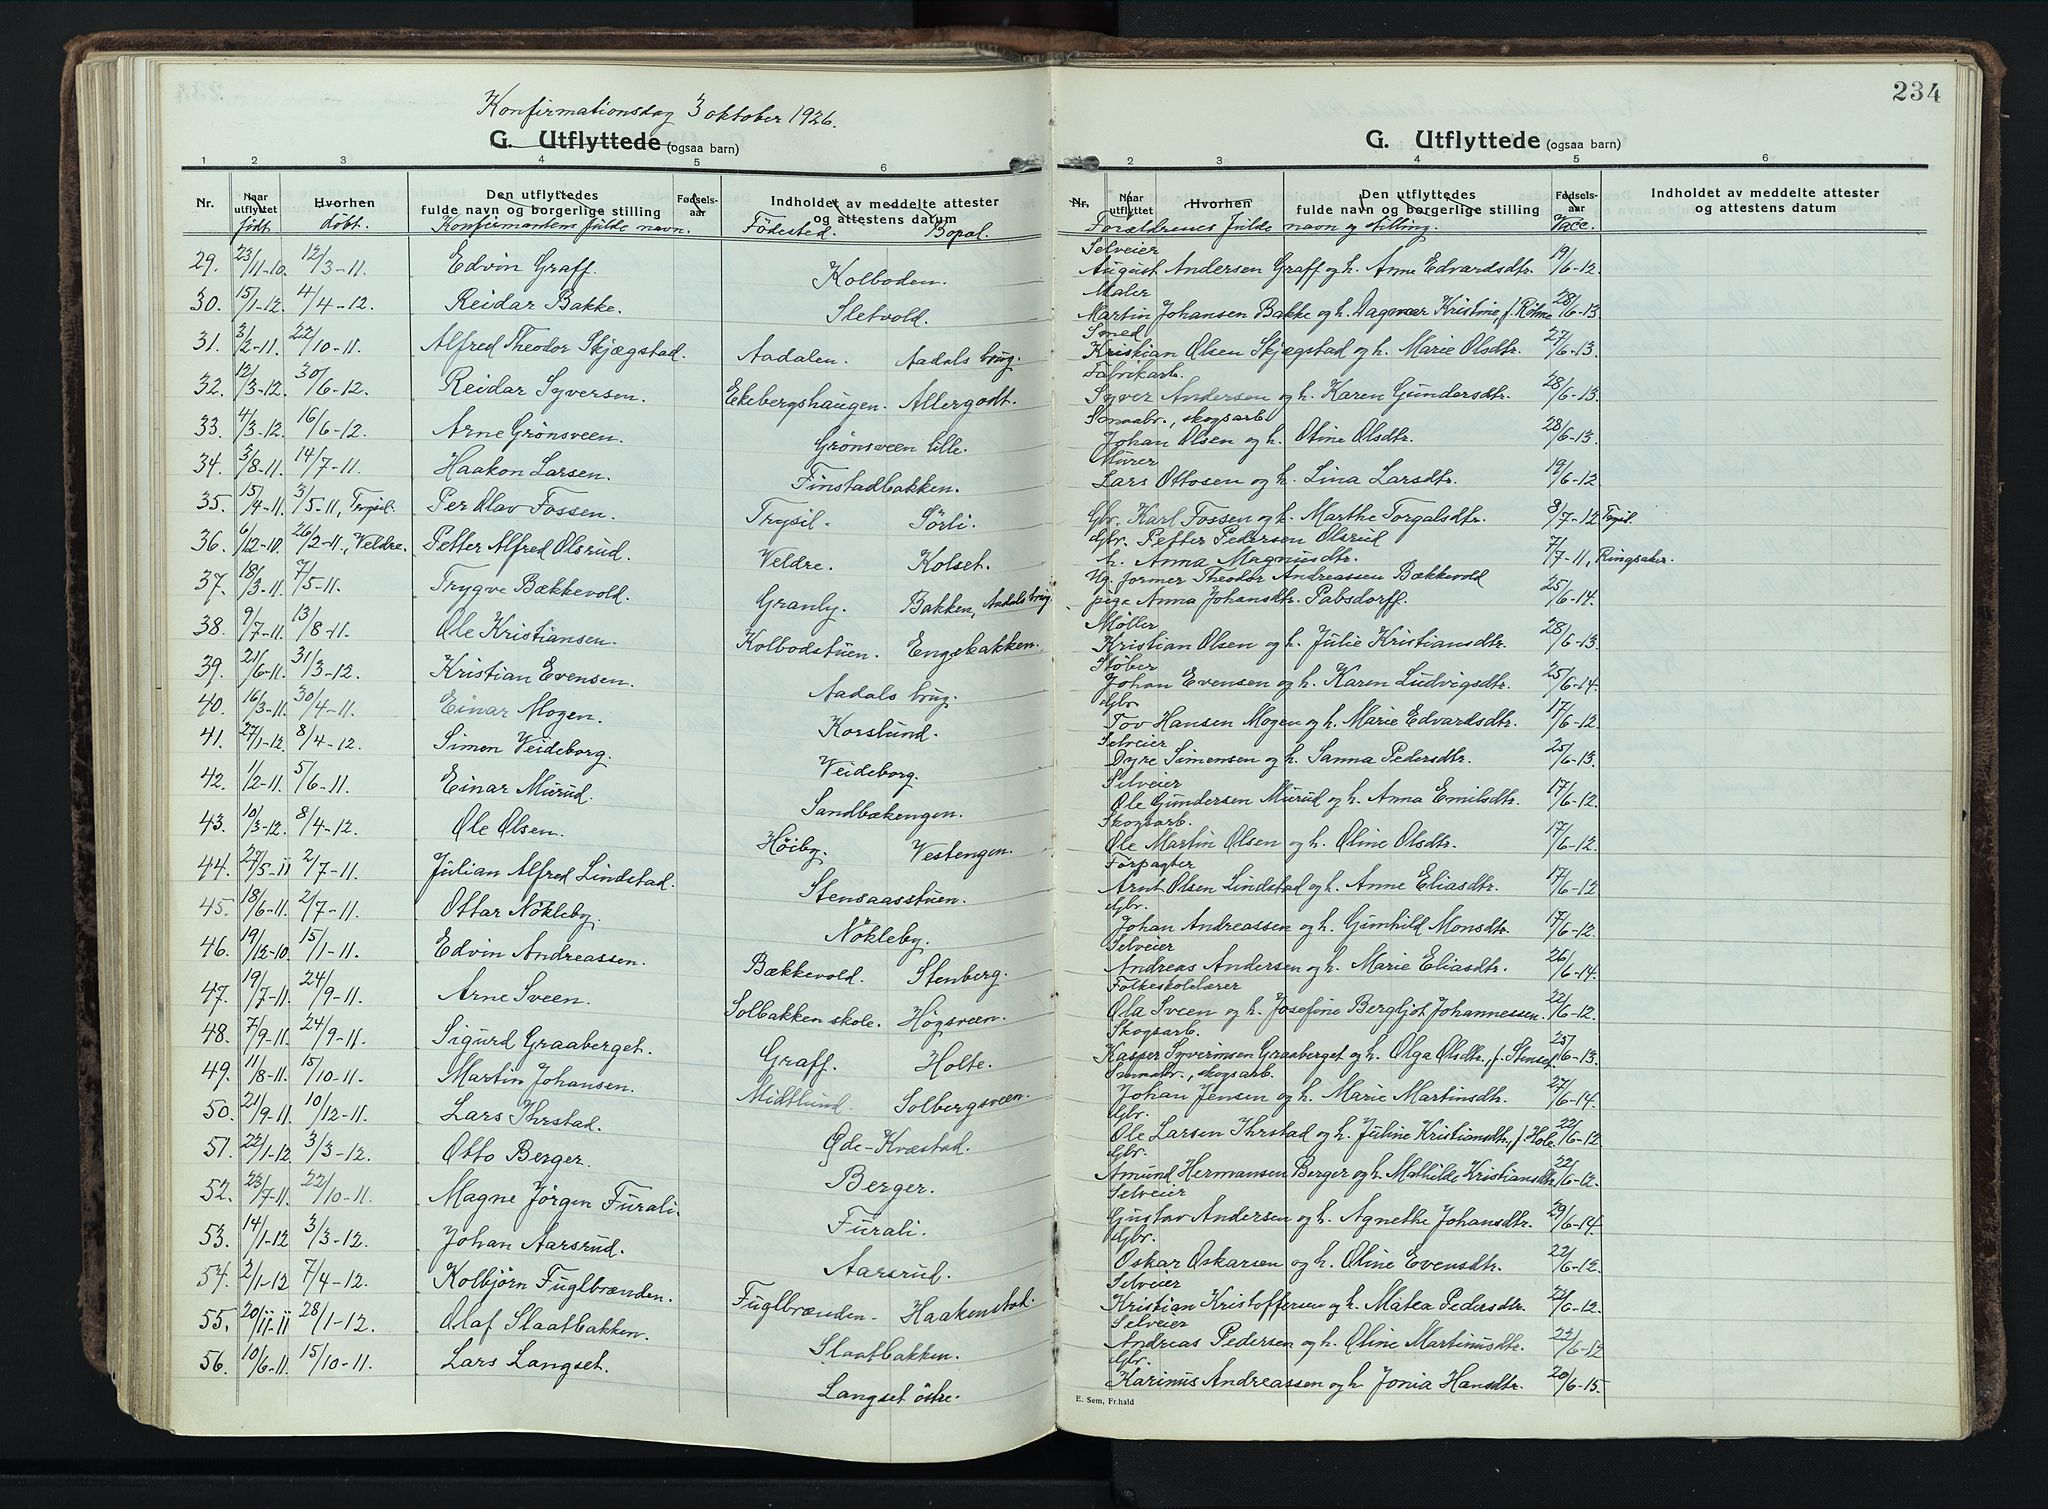 Konfirmationsdag 3 oktober 1926.
G. Utflyttede (ogsaa barn)
1 2 3 4 5 6
Nr. Naar utflyttet Hvorhen Den utflyttedes fulde navn og borgerlige stilling Fødselsaar Indholdet av meddelte attester og attestens datum
født døbt. Konfirmantens fulde navn. Födested. Bopæl.
29. 23/11-10. 12/3-11. Edvin Graff. Kolboden.
30. 15/1-12. 4/4-12. Reidar Bakke. Sletvold.
31. 3/2-11. 22/10-11. Alfred Theodor Skjægstad. Aadalen. Aadals brug.
32. 12/3-12. 30/6-12. Reidar Syversen. Ekebergshaugen. Allergodt.
33. 4/3-12. 16/6-12. Arne Grönsveen. Grönsveen lille.
34. 3/8-11. 14/7-11. Haakon Larsen. Finstadbakken.
35. 15/4-11. 3/5-11, Trysil. Per Olav Fossen. Trysil - Sörli.
36. 6/12-10. 26/2-11, Veldre. Petter Alfred Olsrud. Veldre. Kolset.
37. 18/3-11. 7/5-11. Trygve Bækkevold. Granly. Bakken, Aadals brug.
38. 9/7-11. 13/8-11. Ole Kristiansen. Kolbodstuen. Engebakken.
39. 21/6-11. 31/3-12. Kristian Evensen. Aadals brug.
40. 16/3-11. 30/4-11. Einar Mogen. Korslund.
41. 27/1-12. 8/4-12. Simen Veideborg. Veideborg.
42. 1/2-11. 5/6-11. Einar Murud. Sandbækengen.
43. 10/3-12. 8/4-12. Ole Olsen. Höiby. Vestengen.
44. 27/5-11 2/7-11. Julian Alfred Lindstad. Stensaasstuen.
45. 18/6-11. 2/7-11. Ottar Nökleby. Nökleby.
46. 19/12-10. 15/1-11. Edvin Andreassen. Bækkevold. Stenberg.
47. 19/7-11. 24/9-11. Arne Sveen. Solbakken skole. Högsveen.
48. 7/9-11. 24/9-11. Sigurd Graaberget. Graff. Holte.
49. 11/8-11. 15/10-11. Martin Johansen. Midtlund. Solbergsveen.
50. 21/9-11. 10/12-11. Lars Ihrstad. Gde-Kvæstad.
51. 22/1-12. 3/3-12. Otto Berger. Berger.
52. 23/7-11. 22/10-11. Magne Jörgen Furali. Furali.
53. 14/1-12 3/3-12. Johan Aarsrud. Aarsrud.
54. 2/1-12 7/4-12. Kolbjörn Fuglbrænden. Fuglbrænden - Haakenstad.
55. 20/11-11 28/1-12. Olaf Slaatbakken. Slaatbakken.
56. 10/6-11. 15/10-11. Lars Langset. Langset östre.
234
G. Utflyttede (ogsaa barn)
1 2 3 4 5 6
Nr. Naar utflyttet Hvorhen Den utflyttedes fulde navn og borgerlige stilling Fødselsaar Indholdet av meddelte attester og attestens datum
Forældrenes fulde navn og stilling. Vacc.
Selveier
August Andersen Graff og h. Anne Edvardsdtr. 19/6-12.
Maler
Martin Johansen Bakke og h. Dagmar Kristine, f. Röhne 28/6-13.
Smed
Kristian Olsen Skjægstad og h. Marie Olsdtr. 27/6-13.
Fabrikarb.
Syver Andersen og h. Karen Gundersdtr. 28/6-13.
Smaabr., skogsarb.
Johan Olsen og h. Oline Olsdtr. 28/6-13.
Murer
Lars Ottosen og h. Lina Larsdtr. 19/6-12.
Gbr. Karl Fossen og h. Marthe Torgalsdtr. 8/7-12 Trysil.
Gbr. Petter Pedersen Olsrud
h. Anna Magnusdtr. 7/7-11, Ringsaker.
Ug. former Theodor Andreassen Bækkevold
pige Anna Johansdtr. Pabsdorff. 25/6-14.
Møller
Kristian Olsen og h. Julie Kristiansdtr. 28/6-13.
Støber
Johan Evensen og h. Karen Ludvigsdtr. 25/6-14.
Gbr
Tov Hansen Mogen og h. Marie Edvardsdtr. 17/6-12.
Selveier
Dyre Simensen og h. Sanna Pedersdtr. 25/6-13.
Selveier
Ole Gundersen Murud og h. Anna Emilsdtr. 17/6-12.
Skogsarb.
Ole Martin Olsen og h. Oline Olsdtr. 17/6-12.
Forpagter
Arnt Olsen Lindstad og h. Anne Eliasdtr. 17/6-12
Gbr.
Johan Andreassen og h. Gunhild Monsdtr. 17/6-12.
Selveier
Andreas Andersen og h. Marie Eliasdtr. 26/6-14.
Folkeskolelærer
Ola Sveen og h. Josefine Bergljot Johannessen. 22/6-12.
Skogsarb.
Kasper Syverinsen Graaberget og h. Olga Olsdtr., f. Stenset 25/6-13.
Smaabr., skogsarb.
Johan Jensen og h. Marie Martinsdtr. 27/6-14.
Gbr.
Ole Larsen Ihrstad og h. Juline Kristiansdtr., f. Hole. 22/6-12
Gbr.
Amund Hermansen Berger og h. Mathilde Kristiansdtr. 22/6-12.
Selveier
Gustav Andersen og h. Agnethe Johansdtr. 29/6-14.
Gbr.
Oskar Oskarsen og h. Oline Evensdtr. 22/6-12.
Selveier
Kristian Kristoffersen og h. Matea Pedersdtr. 22/6-12.
Selveier
Andreas Pedersen og h. Oline Martinusdtr. 22/6-12
Gbr.
Karinus Andreassen og h. Jonia Hansdtr. 20/6-15.
E. Sem, Fr.hald